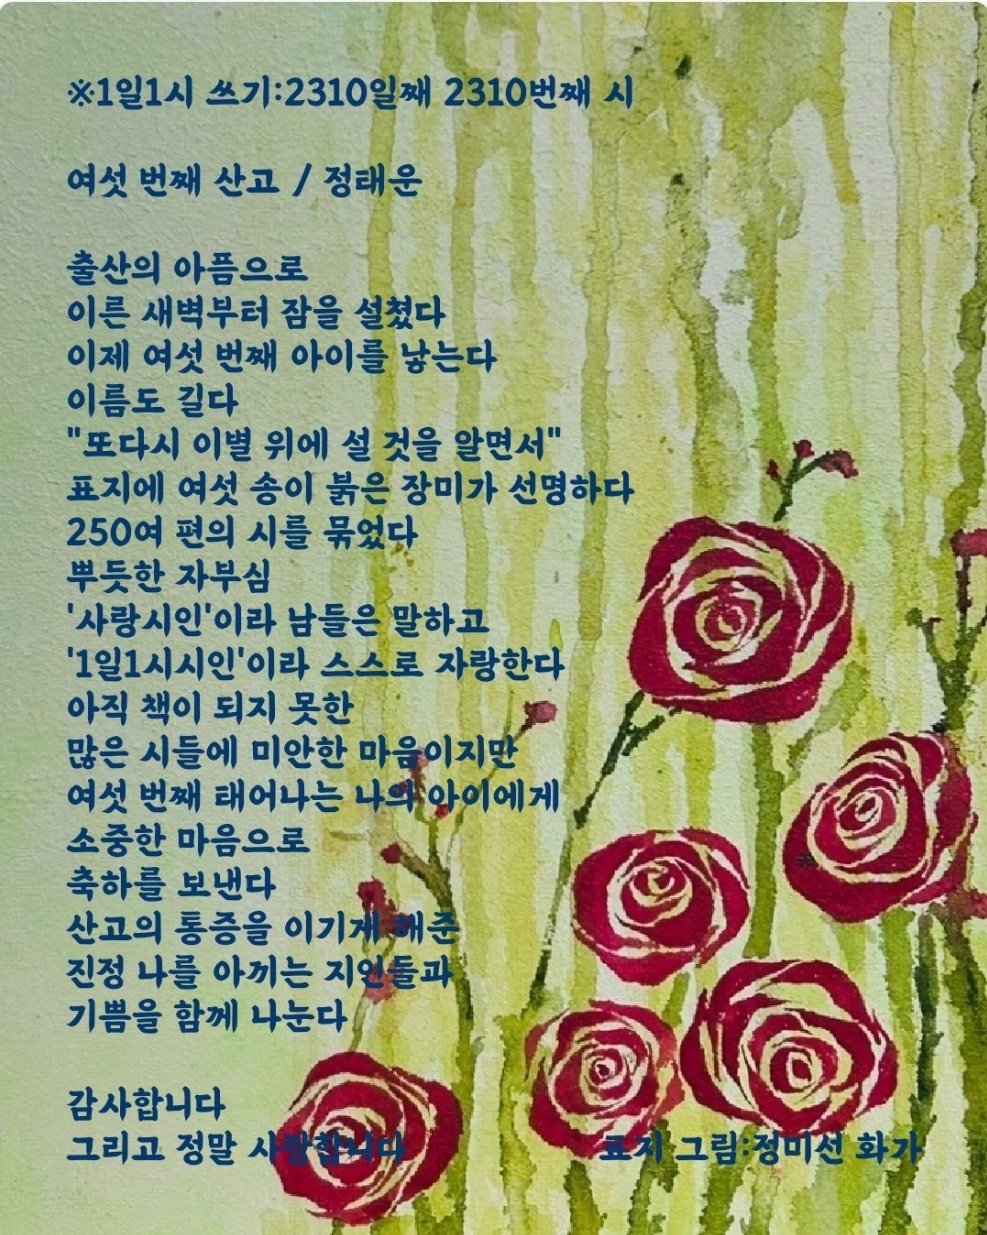 ※1일1시 쓰기:2310일째 2310번째 시
여섯 번째 산고 / 정태운
출산의 아픔으로
이른 새벽부터 잠을 설쳤다
이제 여섯 번째 아이를 낳는다
이름도 길다
"또다시 이별 위에 설 것을 알면서"
표지에 여섯 송이 붉은 장미가 선명하다
250여 편의 시를 묶었다
뿌듯한 자부심
'사랑시인'이라 남들은 말하고
'1일1시시인'이라 스스로 자랑한다
아직 책이 되지 못한
많은 시들에 미안한 마음이지만
여섯 번째 태어나는 나의 아이에게
소중한 마음으로
축하를 보낸다
산고의 통증을 이기게 해준
진정 나를 아끼는 지인들과
기쁨을 함께 나눈다
감사합니다
그리고 정말 사랑합니다
표지 그림:정미선 화가